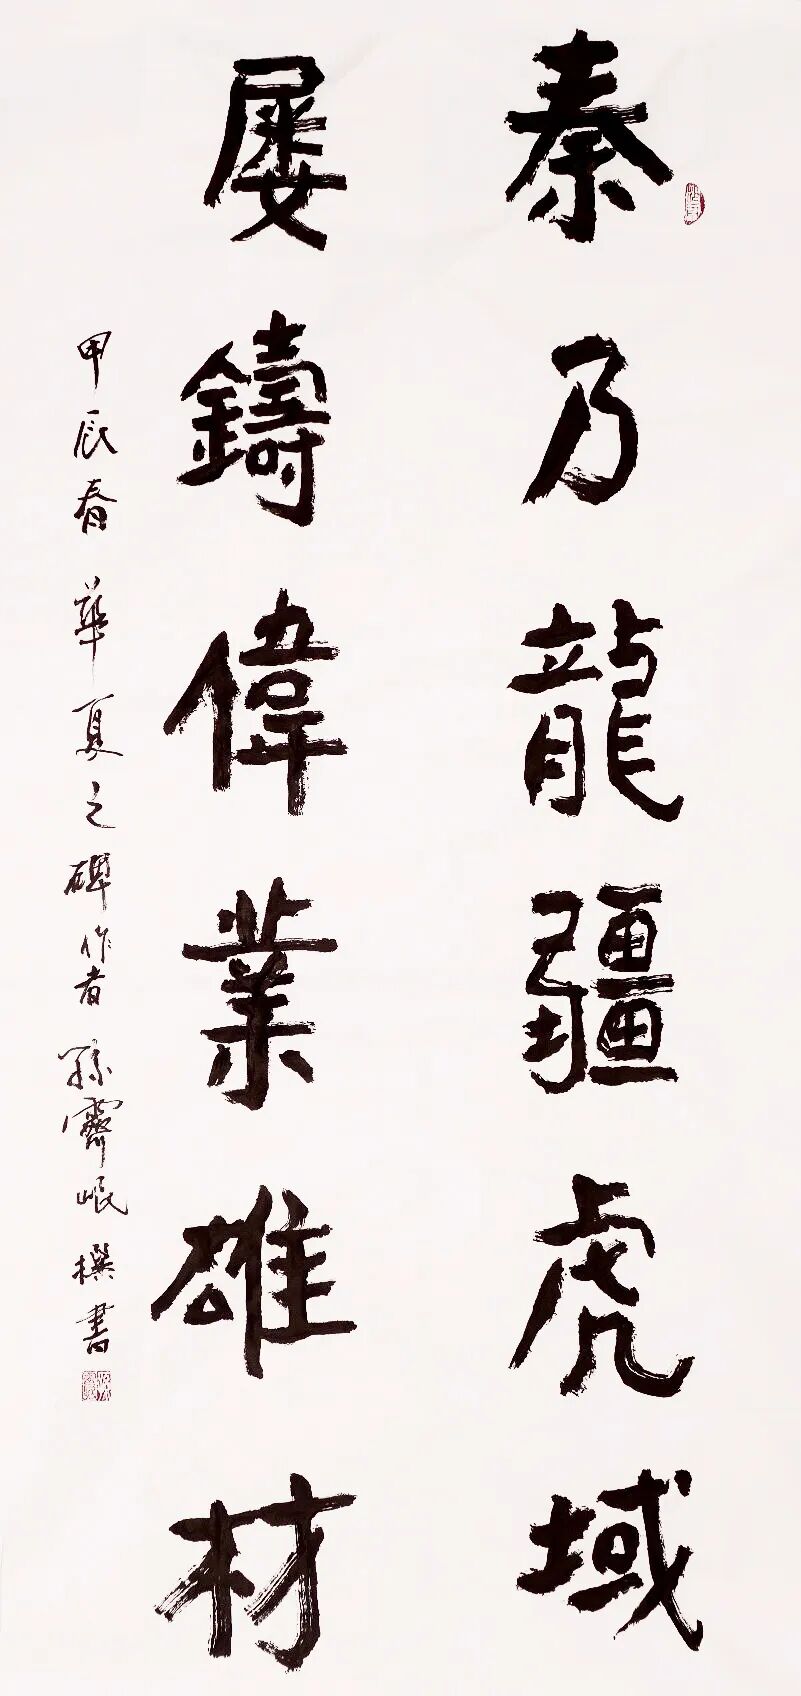 秦乃龍疆虎域
屡鑄偉業雄材
甲辰春華夏之碑作者孫霽岷撰書